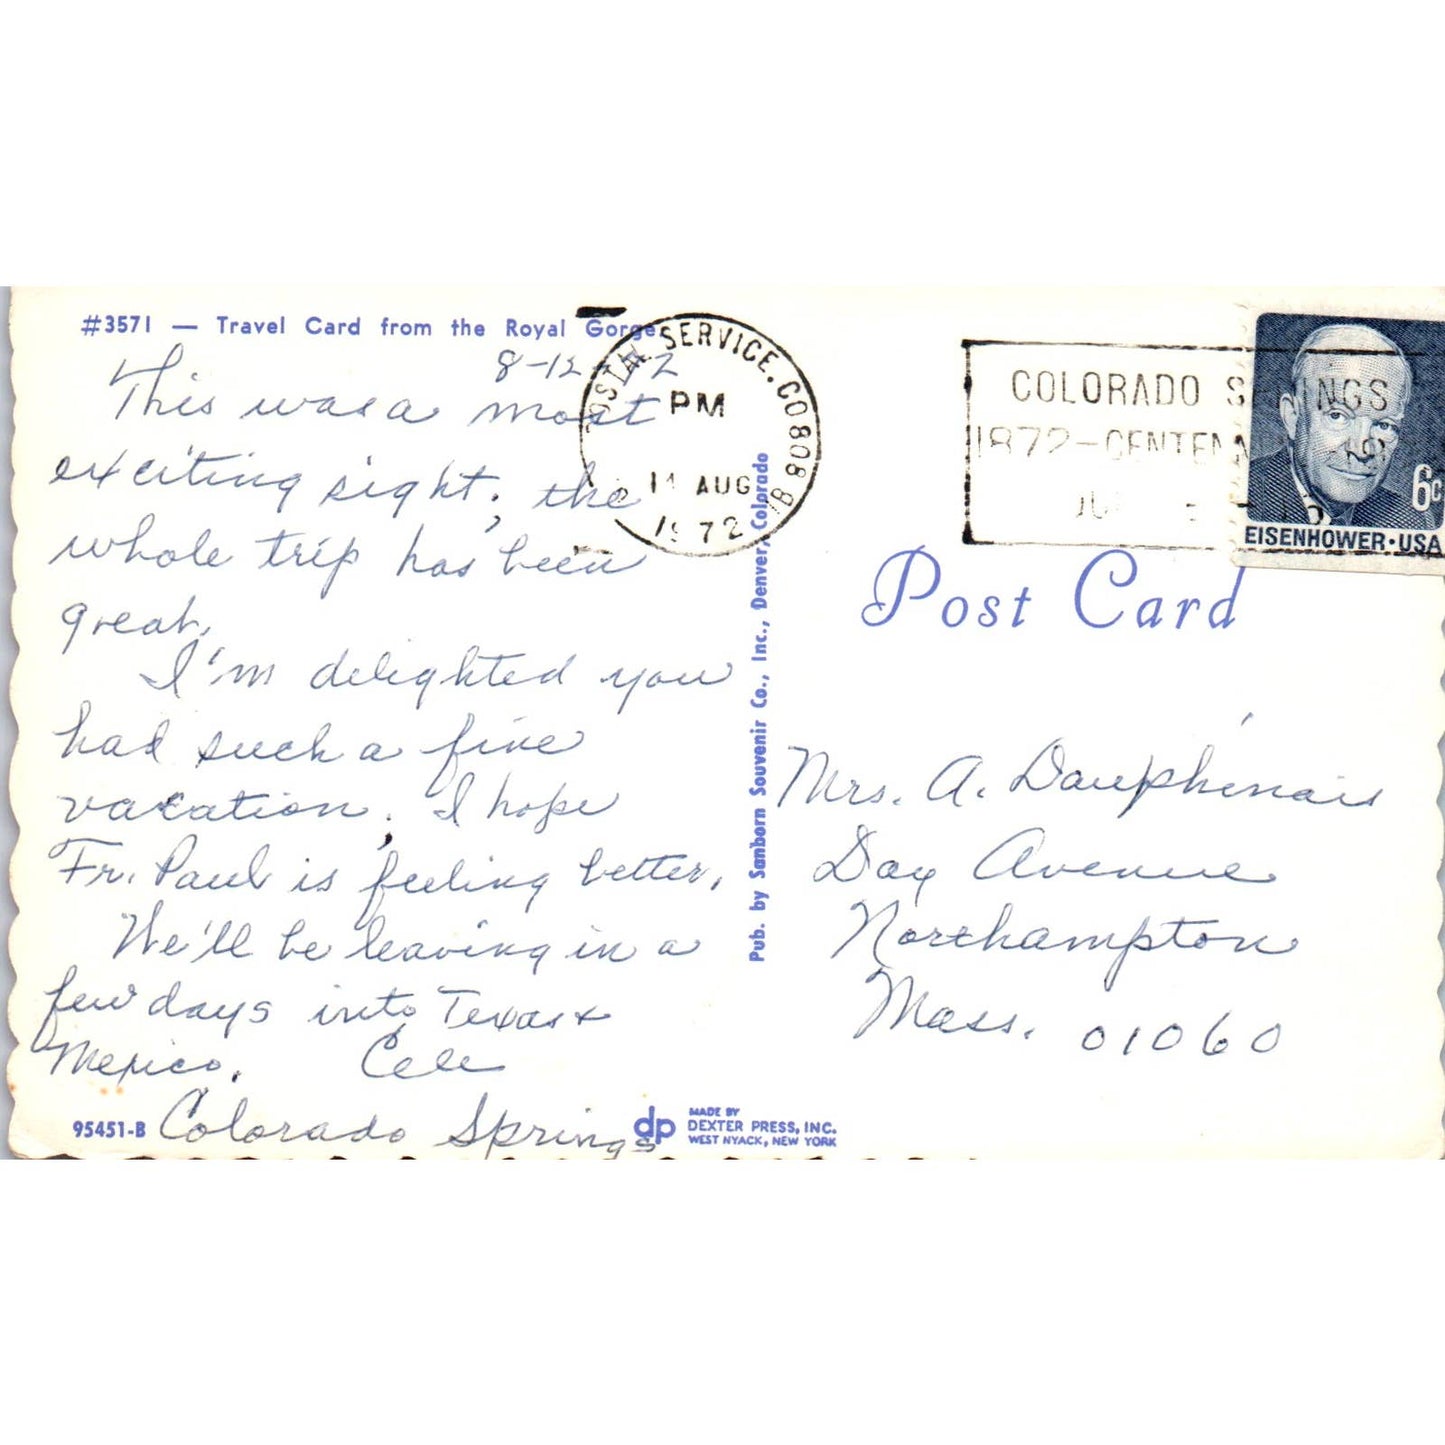 #3571 — Travel Card from the Royal Gorge
8-12-72
This was a most
exciting sight; the
whole trip has been
great.
I'm delighted you
had such a fine
vacation. I hope
Fr. Paul is feeling better.
We'll be leaving in a
few days into Texas &
Mexico. Cele
Colorado Springs
95451-B
dp
MADE BY
DEXTER PRESS, INC.
WEST NYACK, NEW YORK
Pub. by Sanborn Souvenir Co., Inc., Denver, Colorado
POSTAL SERVICE. CO 808
PM
AUG
1972
COLORADO SPRINGS
1872-CENTENNIAL
6c
EISENHOWER·USA
Post Card
Mrs. A. Dauphinais
Day Avenue
Northampton
Mass. 01060